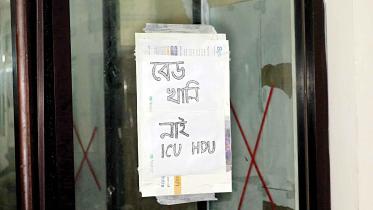 বেড
খানি
নাই
ICU HDU